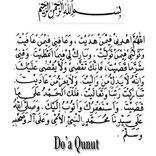 بِسْمِ اللهِ الرَّحْمٰنِ الرَّحِيْمِ
اَللّٰهُمَّ اهْدِنِيْ فِيْمَنْ هَدَيْتَ وَعَافِنِيْ فِيْمَنْ عَافَيْتَ
وَتَوَلَّنِيْ فِيْمَنْ تَوَلَّيْتَ وَبَارِكْ لِيْ فِيْمَا اَعْطَيْتَ وَقِنِيْ
شَرَّ مَا قَضَيْتَ فَاِنَّكَ تَقْضِيْ وَلَا يُقْضٰى عَلَيْكَ
وَاِنَّهُ لَا يَذِلُّ مَنْ وَالَيْتَ وَلَا يَعِزُّ مَنْ عَادَيْتَ
تَبَارَكْتَ رَبَّنَا وَتَعَالَيْتَ فَلَكَ الْحَمْدُ عَلٰى مَا
قَضَيْتَ وَاَسْتَغْفِرُكَ وَاَتُوْبُ اِلَيْكَ وَصَلَّى اللهُ
عَلٰى سَيِّدِنَا مُحَمَّدٍ النَّبِيِّ الْاُمِّيِّ وَعَلٰى اٰلِهِ وَصَحْبِهِ
وَسَلَّمَ
Do'a Qunut